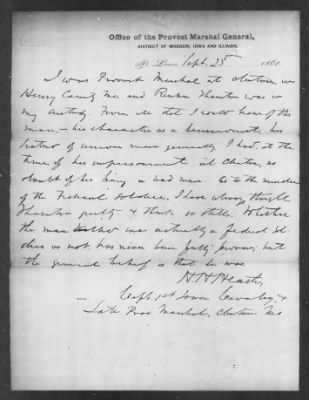 Office of the Provost Marshal General,
DISTRICT OF MISSOURI, IOWA AND ILLINOIS.
St. Louis, Sept. 25 186
I was Provost Marshal at Clinton, in
Henry County Mo. and was in
my custody. From all that I could learn of the
man — his character as a his
hatred of union men generally I had, at the
time of his imprisonment at Clinton, no
doubt of his being a bad man. As to the murder
of the Federal soldier, I have always thought
guilty & think so still. Whether
the man was actually a federal sol-
dier or not has never been fully proven; but
the general belief is that he was.
Capt 1st Iowa Cavalry &
Late Prov Marshal, Clinton Mo